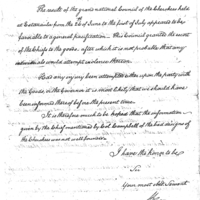 The result of the grand national Council of the Cherokees held
at Estanaula from the 26 of June to the first of July appears to be
favorable to a general pacification. This Council granted the escort
of the Chiefs to the goods, after which it is not probable that any
individuals would attempt violence thereon.
Had any injury been attempted either upon the party with
the Goods in Governor it is most likely that we should have
been informed thereof before the present time.
It is therefore much to be hoped that the information
given by the Chief mentioned by Col. Campbell of the bad designs of
the Cherokees was not well founded.
I have the honor to be
Sir
Your most obt Servant